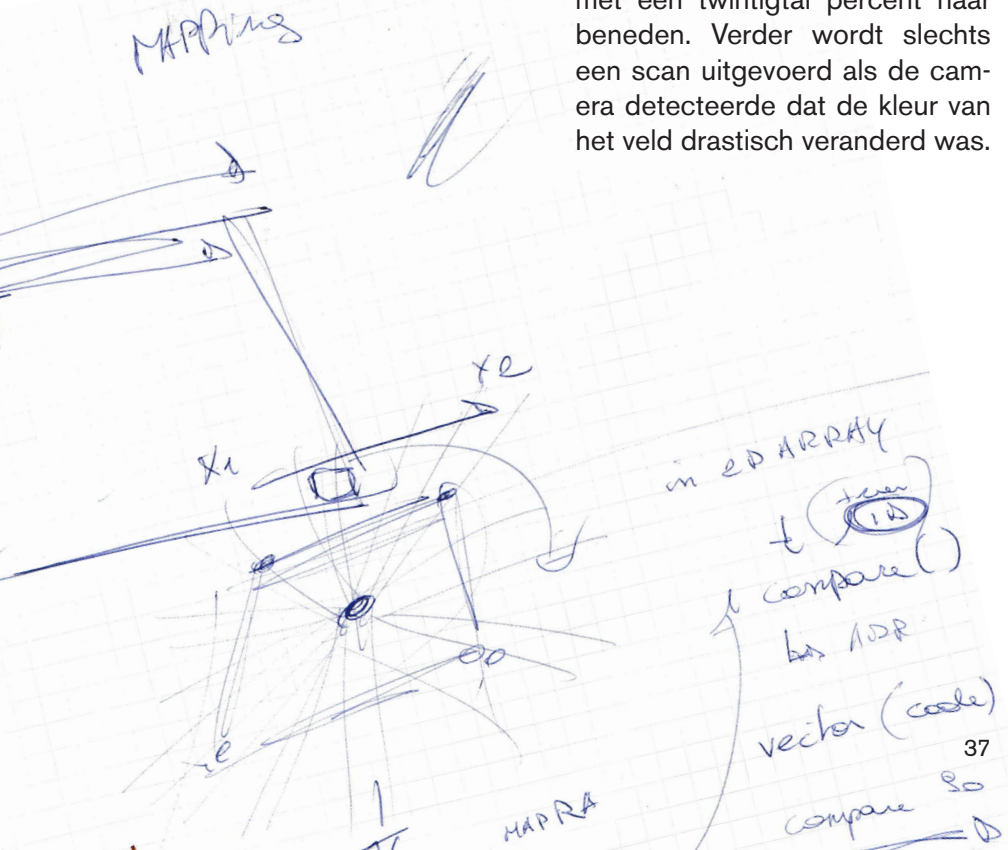 met een twintigtal percent naar
beneden. Verder wordt slechts
een scan uitgevoerd als de cam-
era detecteerde dat de kleur van
het veld drastisch veranderd was.
MAPPING
x2
x1
in 2D ARRAY
t
compare ()
vector (code)
37
compare
MAPRA